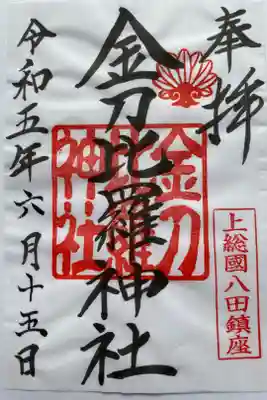 奉拝
上総國八田鎮座
金刀比羅神社
金刀比羅神社
令和五年六月十五日